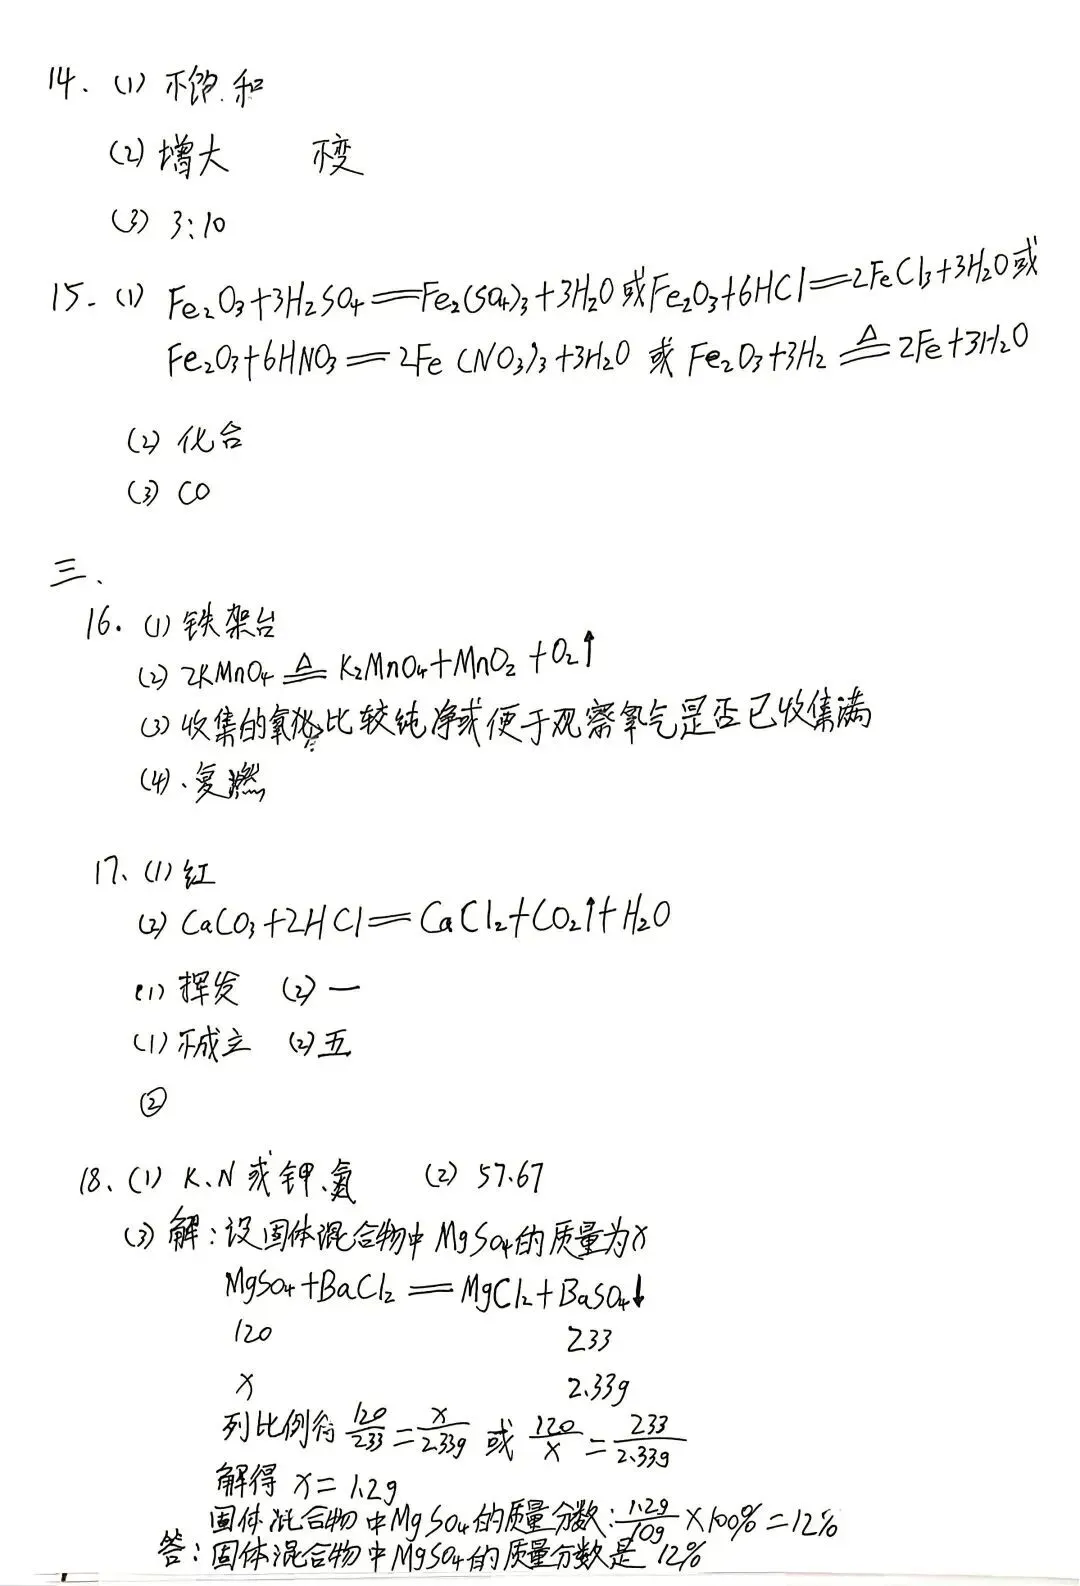 14. (1) 不饱和
(2) 增大 不变
(3) 3:10
15. (1) Fe₂O₃+3H₂SO₄═Fe₂(SO₄)₃+3H₂O 或 Fe₂O₃+6HCl═2FeCl₃+3H₂O 或
Fe₂O₃+6HNO₃═2Fe(NO₃)₃+3H₂O 或 Fe₂O₃+3H₂ ≜ 2Fe+3H₂O
(2) 化合
(3) CO
三、
16. (1) 铁架台
(2) 2KMnO₄ ≜ K₂MnO₄+MnO₂+O₂↑
(3) 收集的氧比较纯净或便于观察氧气是否已收集满
(4)、复燃
17、(1) 红
(2) CaCO₃+2HCl═CaCl₂+CO₂↑+H₂O
(1) 挥发 (2) 一
(1) 不成立 (2) 五
②
18、(1) K、N 或钾、氮 (2) 57.67
(3) 解：设固体混合物中MgSO₄的质量为x
MgSO₄+BaCl₂═MgCl₂+BaSO₄↓
120 233
x 2.33g
列比例得 120/233=x/2.33g 或 120/x=233/2.33g
解得 x=1.2g
固体混合物中MgSO₄的质量分数:1.2g/10g×100%=12%
答：固体混合物中MgSO₄的质量分数是12%